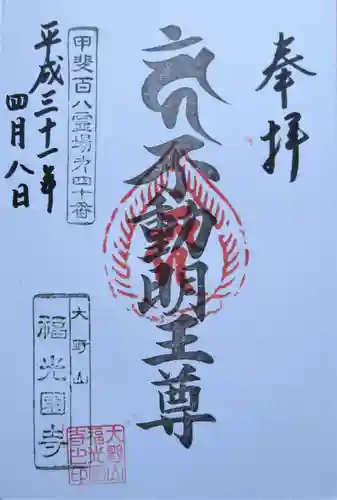 奉拝
不動明王尊
甲斐百八霊場第四十番
平成三十一年
四月八日
大野山
福光園寺